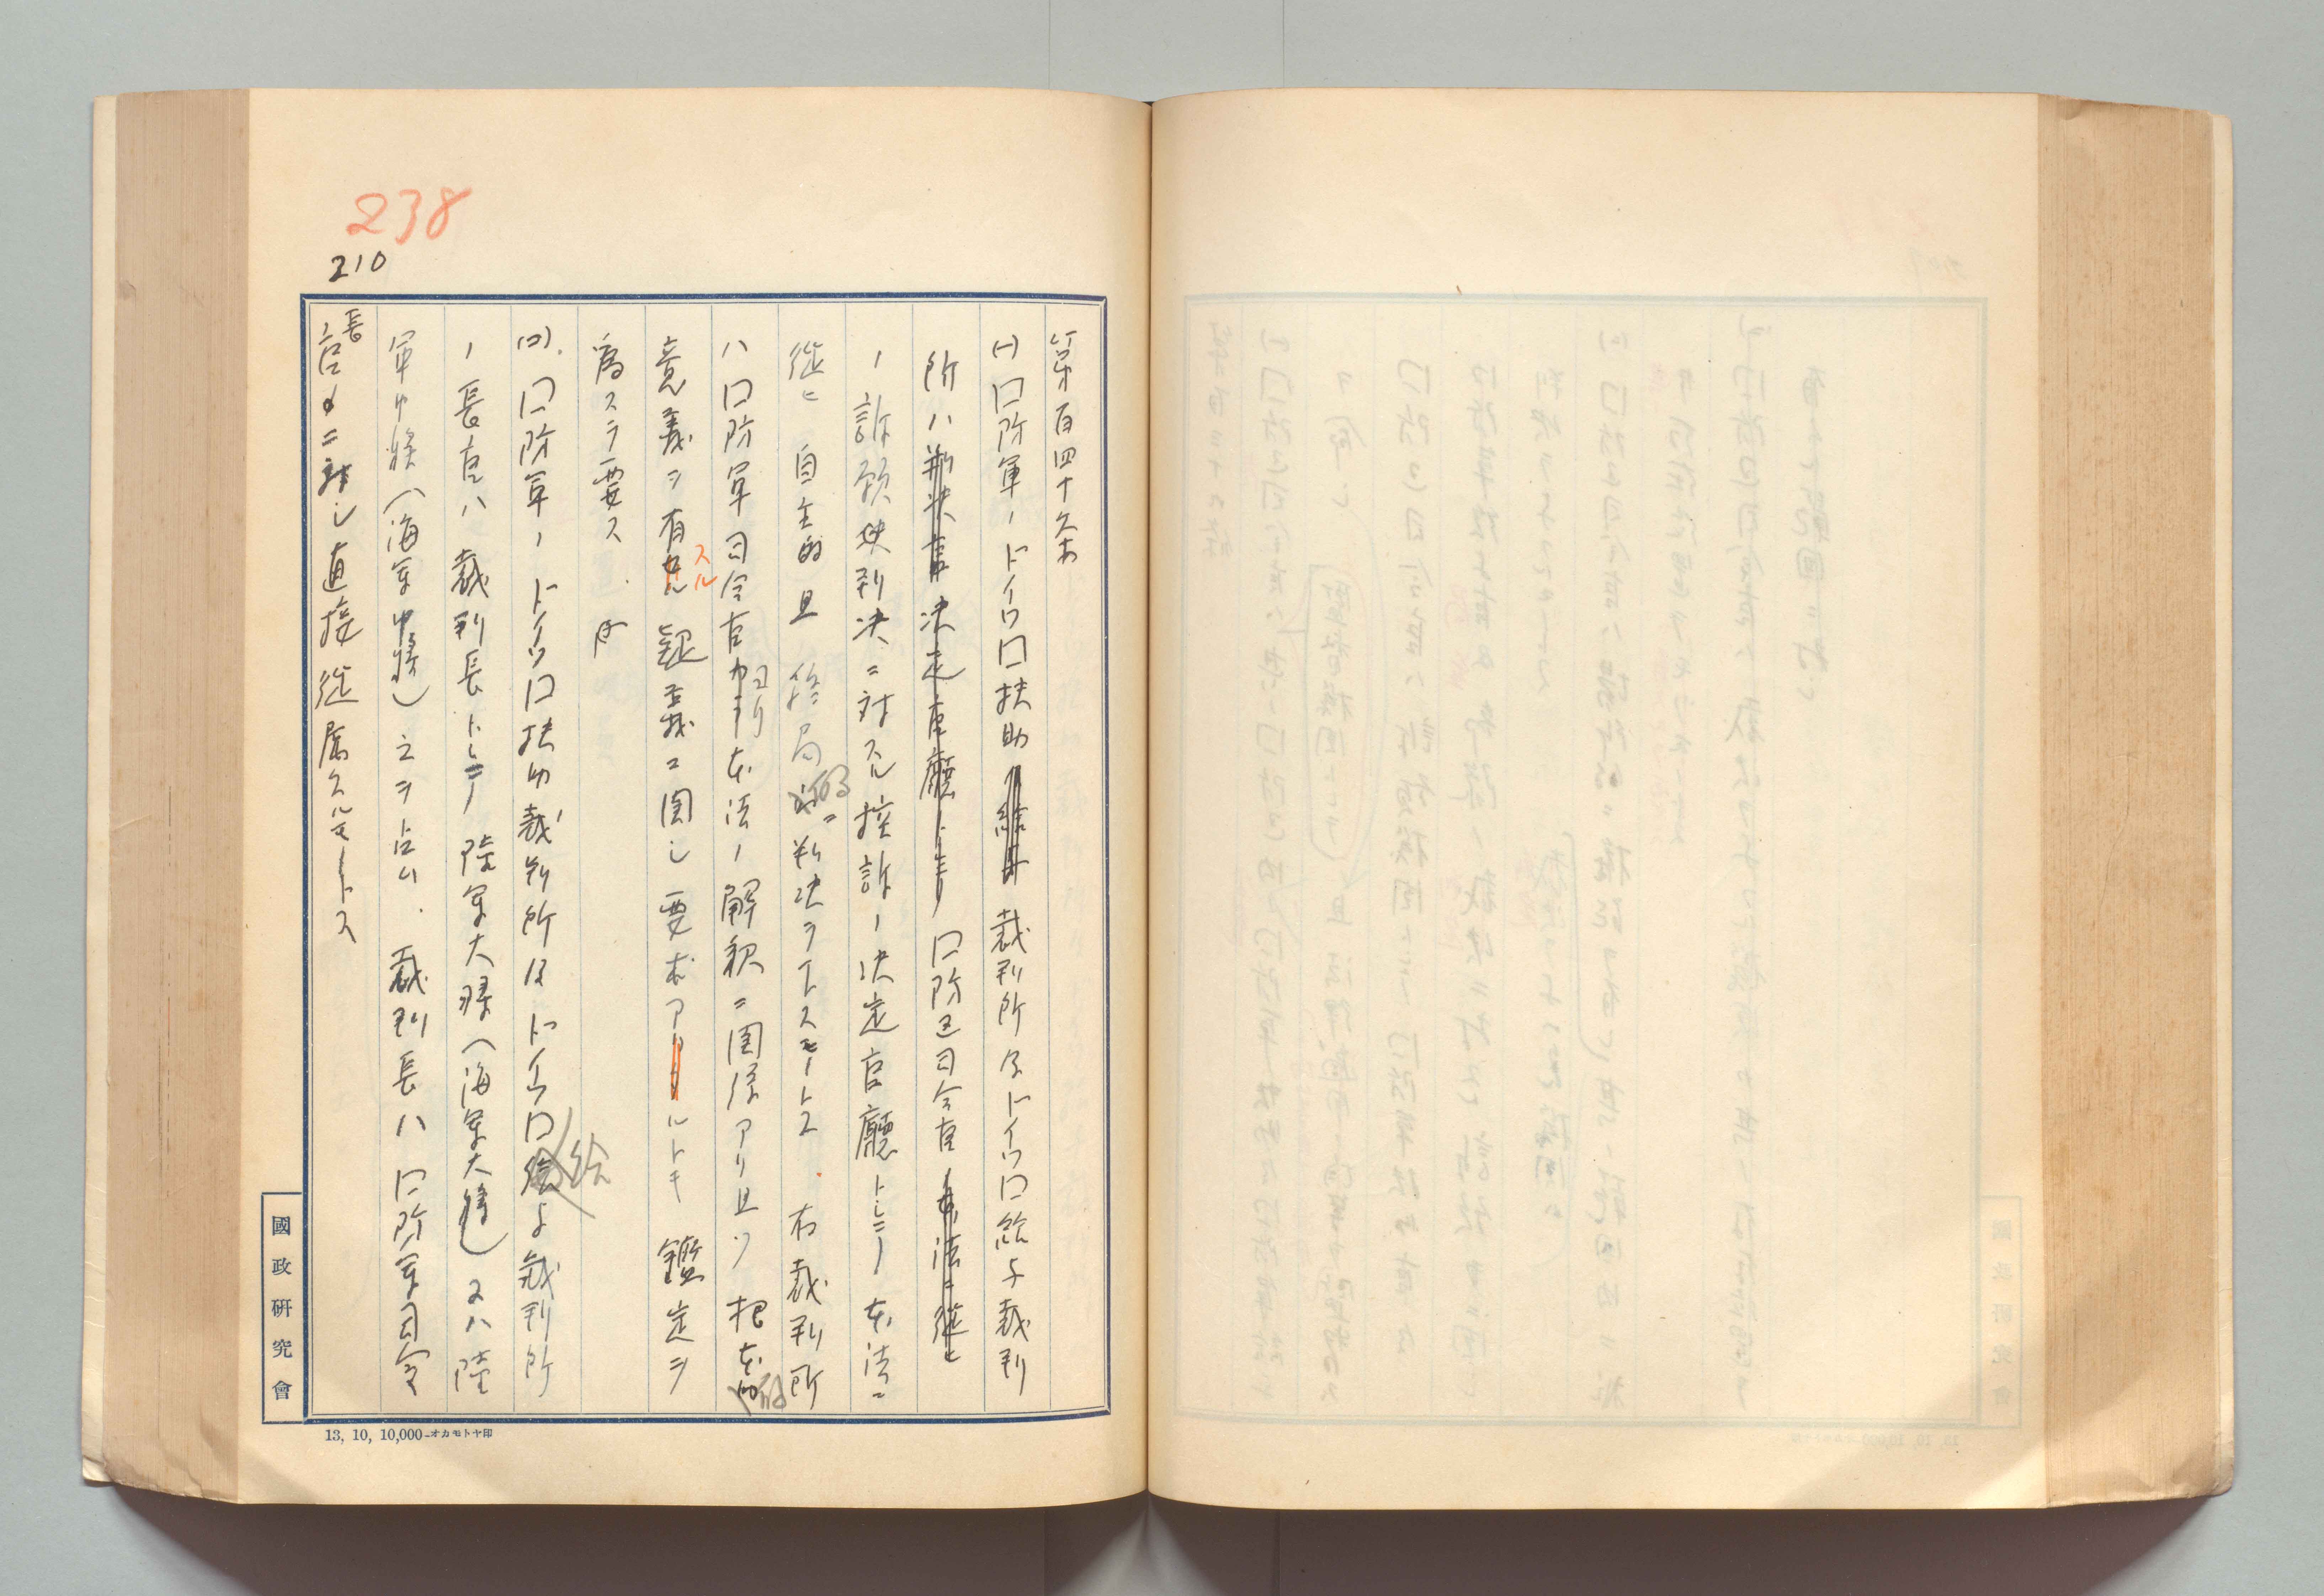 238
210
第百四十条
(一)口防軍ノドイツ口扶助 裁判所及ドイツ口給与裁判
所ハ判決書決定官廳トシテ口防軍司令官本法ニ従ヒ
ノ訴願裁判決ニ対スル控訴ノ決定官廳トシテノ本法ニ
従ヒ自主的且終局的ニ判決ヲ下スモノトス 右裁判所
ハ口防軍司令官ガ本法ノ解釈ニ関係アリ且ツ根本的
意義ヲ有スル疑義ニ関シ要求アルトキ鑑定ヲ
為スヲ要ス
(二)口防軍ノドイツ口扶助裁判所及ドイツ口給与裁判所
ノ長官ハ裁判長トシテ陸軍大将(海軍大将)又ハ陸
軍中将(海軍中将)之ヲ占ム 裁判長ハ口防軍司令
長官ニ対シ直接従属スルモノトス
國政研究會
13, 10, 10,000-オカモトヤ印